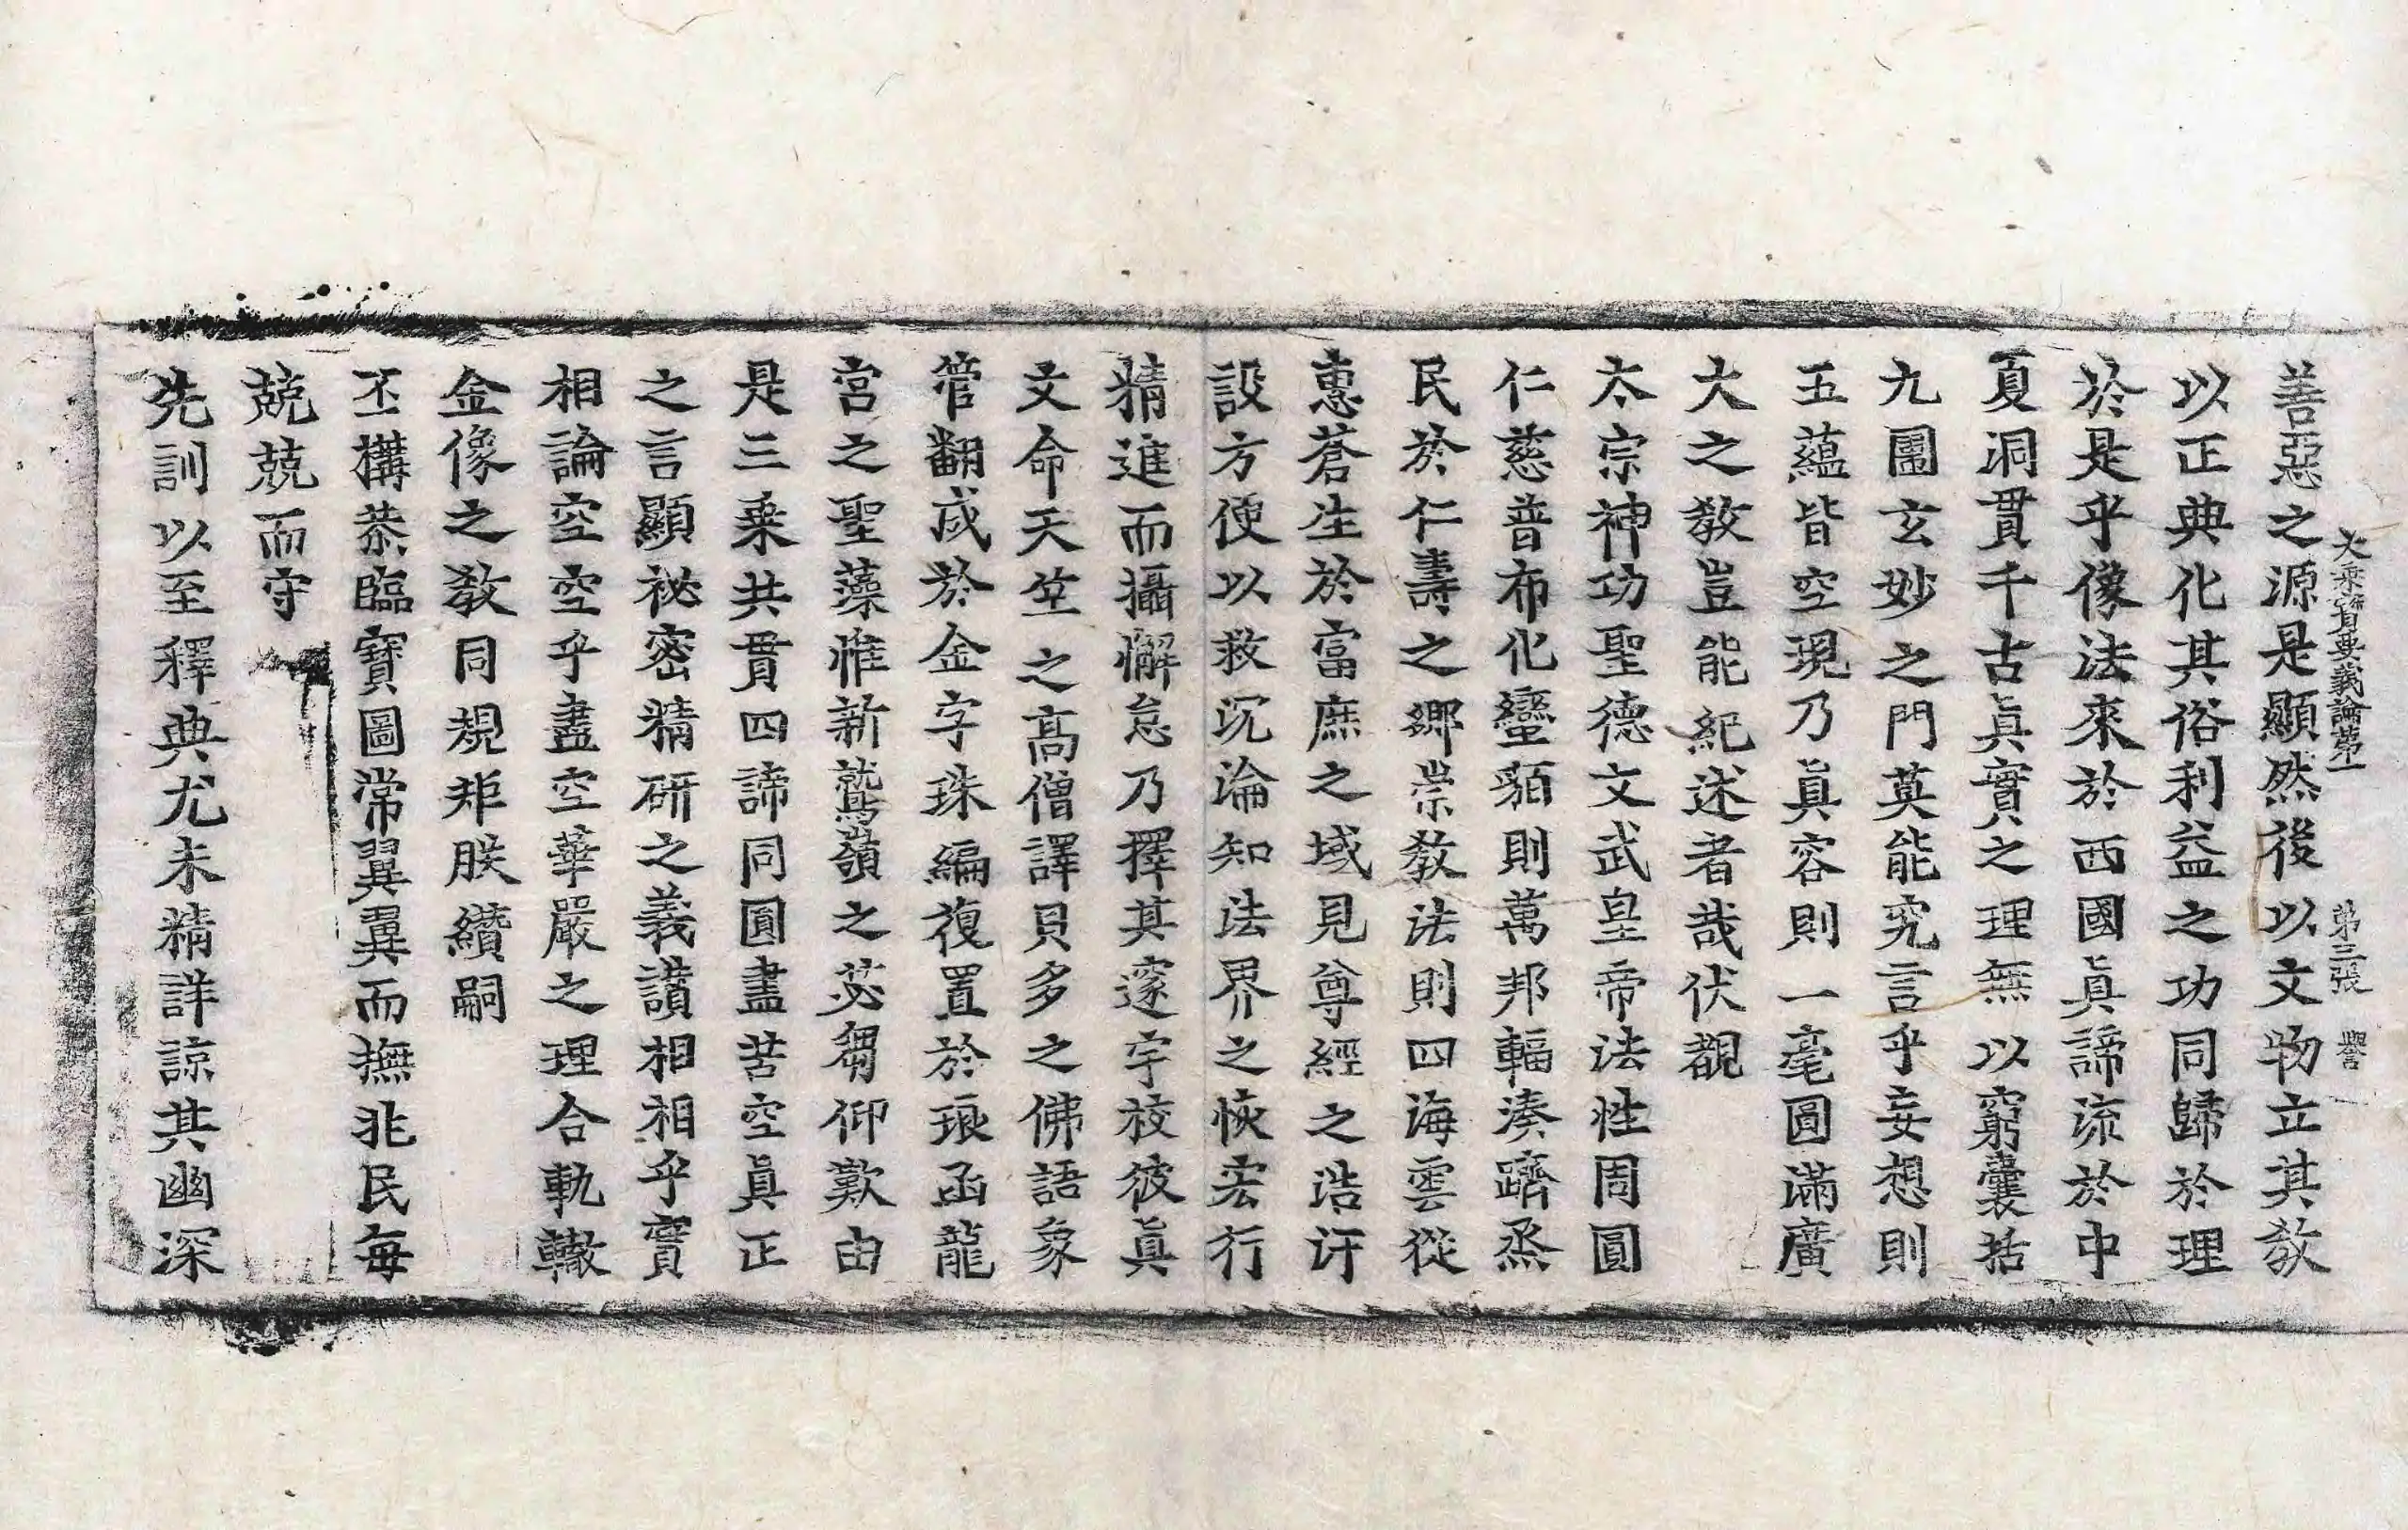 大乘寶要義論第一 第三張 譽
善惡之源是顯然後以文物立其教
以正典化其俗利益之功同歸於理
於是乎像法來於西國眞諦流於中
夏洞貫千古眞實之理無以窮囊括
九圍玄妙之門莫能究言乎妄想則
五蘊皆空現乃眞容則一毫圓滿廣
大之教豈能紀述者哉伏覩
太宗神功聖德文武皇帝法性周圓
仁慈普布化蠻貊則萬邦輻湊躋烝
民於仁壽之鄉崇教法則四海雲從
惠蒼生於富庶之域見尊經之浩汗
設方便以救沉淪知法界之恢宏行
精進而攝懈怠乃擇其邃宇校彼眞
文命天竺之高僧譯貝多之佛語象
管翻成於金字珠編復置於琅函龍
宮之聖藻惟新鷲嶺之苾蒭仰歎由
是三乘共貫四諦同圓盡苦空眞正
之言顯祕密精研之義讚相相乎實
相論空空乎盡空華嚴之理合軌轍
金像之教同規矩朕纘嗣
丕構恭臨寶圖常翼翼而撫兆民每
兢兢而守
先訓以至釋典尤未精詳諒其幽深